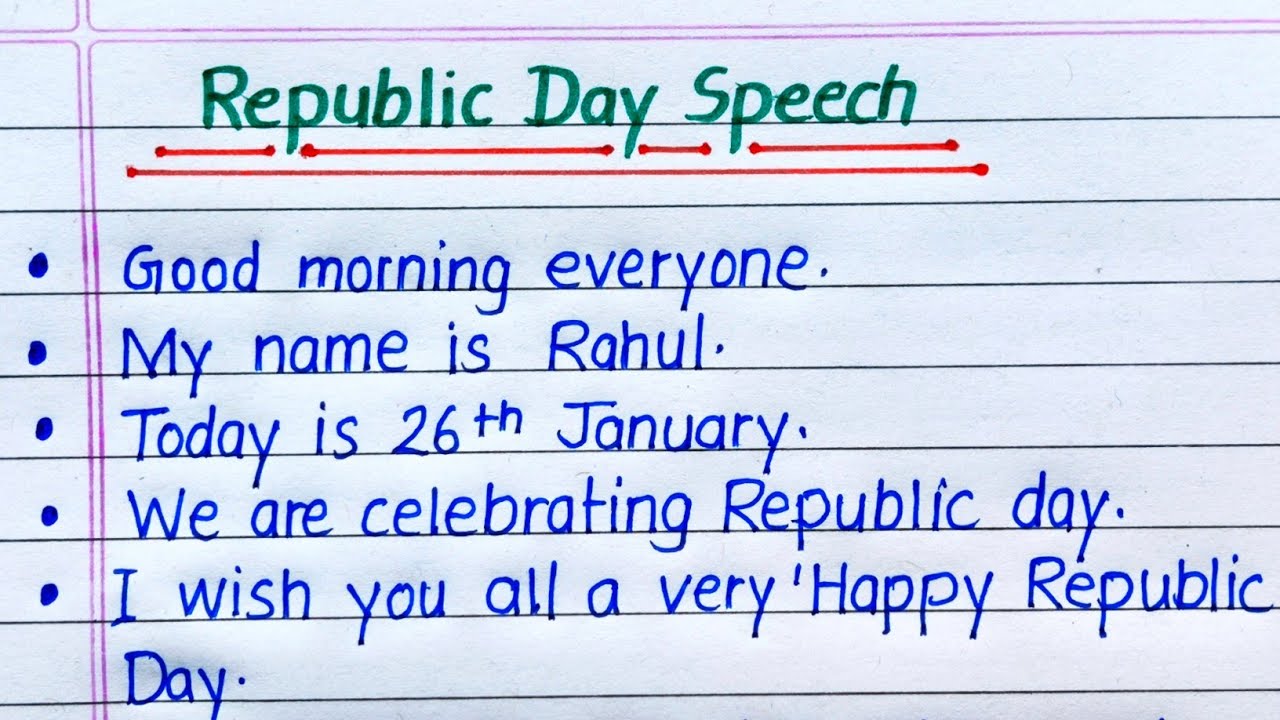 Republic Day Speech
• Good morning everyone.
• My name is Rahul.
• Today is 26th January.
• We are celebrating Republic day.
• I wish you all a very 'Happy Republic
Day.